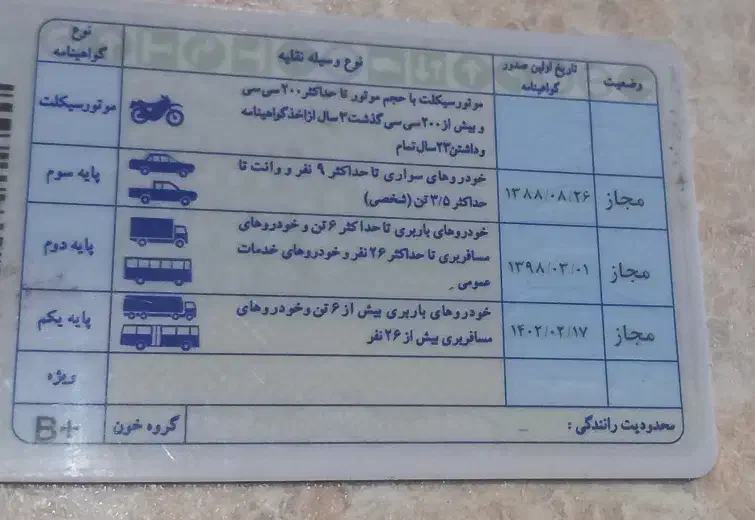 نوع گواهینامه	نوع وسیله نقلیه	تاریخ اولین صدور گواهینامه	وضعیت
موتورسیکلت	موتورسیکلت با حجم موتور تا حداکثر ۲۰۰ سی سی
و بیش از ۲۰۰ سی سی گذشت ۳ سال از اخذ گواهینامه
و داشتن ۲۳ سال تمام
پایه سوم	خودروهای سواری تا حداکثر ۹ نفر و وانت تا
حداکثر ۳/۵ تن (شخصی)	۱۳۸۸/۰۸/۲۶	مجاز
پایه دوم	خودروهای باربری تا حداکثر ۶ تن و خودروهای
مسافربری تا حداکثر ۲۶ نفر و خودروهای خدمات
عمومی	۱۳۹۸/۰۳/۰۱	مجاز
پایه یکم	خودروهای باربری بیش از ۶ تن و خودروهای
مسافربری بیش از ۲۶ نفر	۱۴۰۲/۰۲/۱۷	مجاز
ویژه
محدودیت رانندگی :	گروه خون	B+